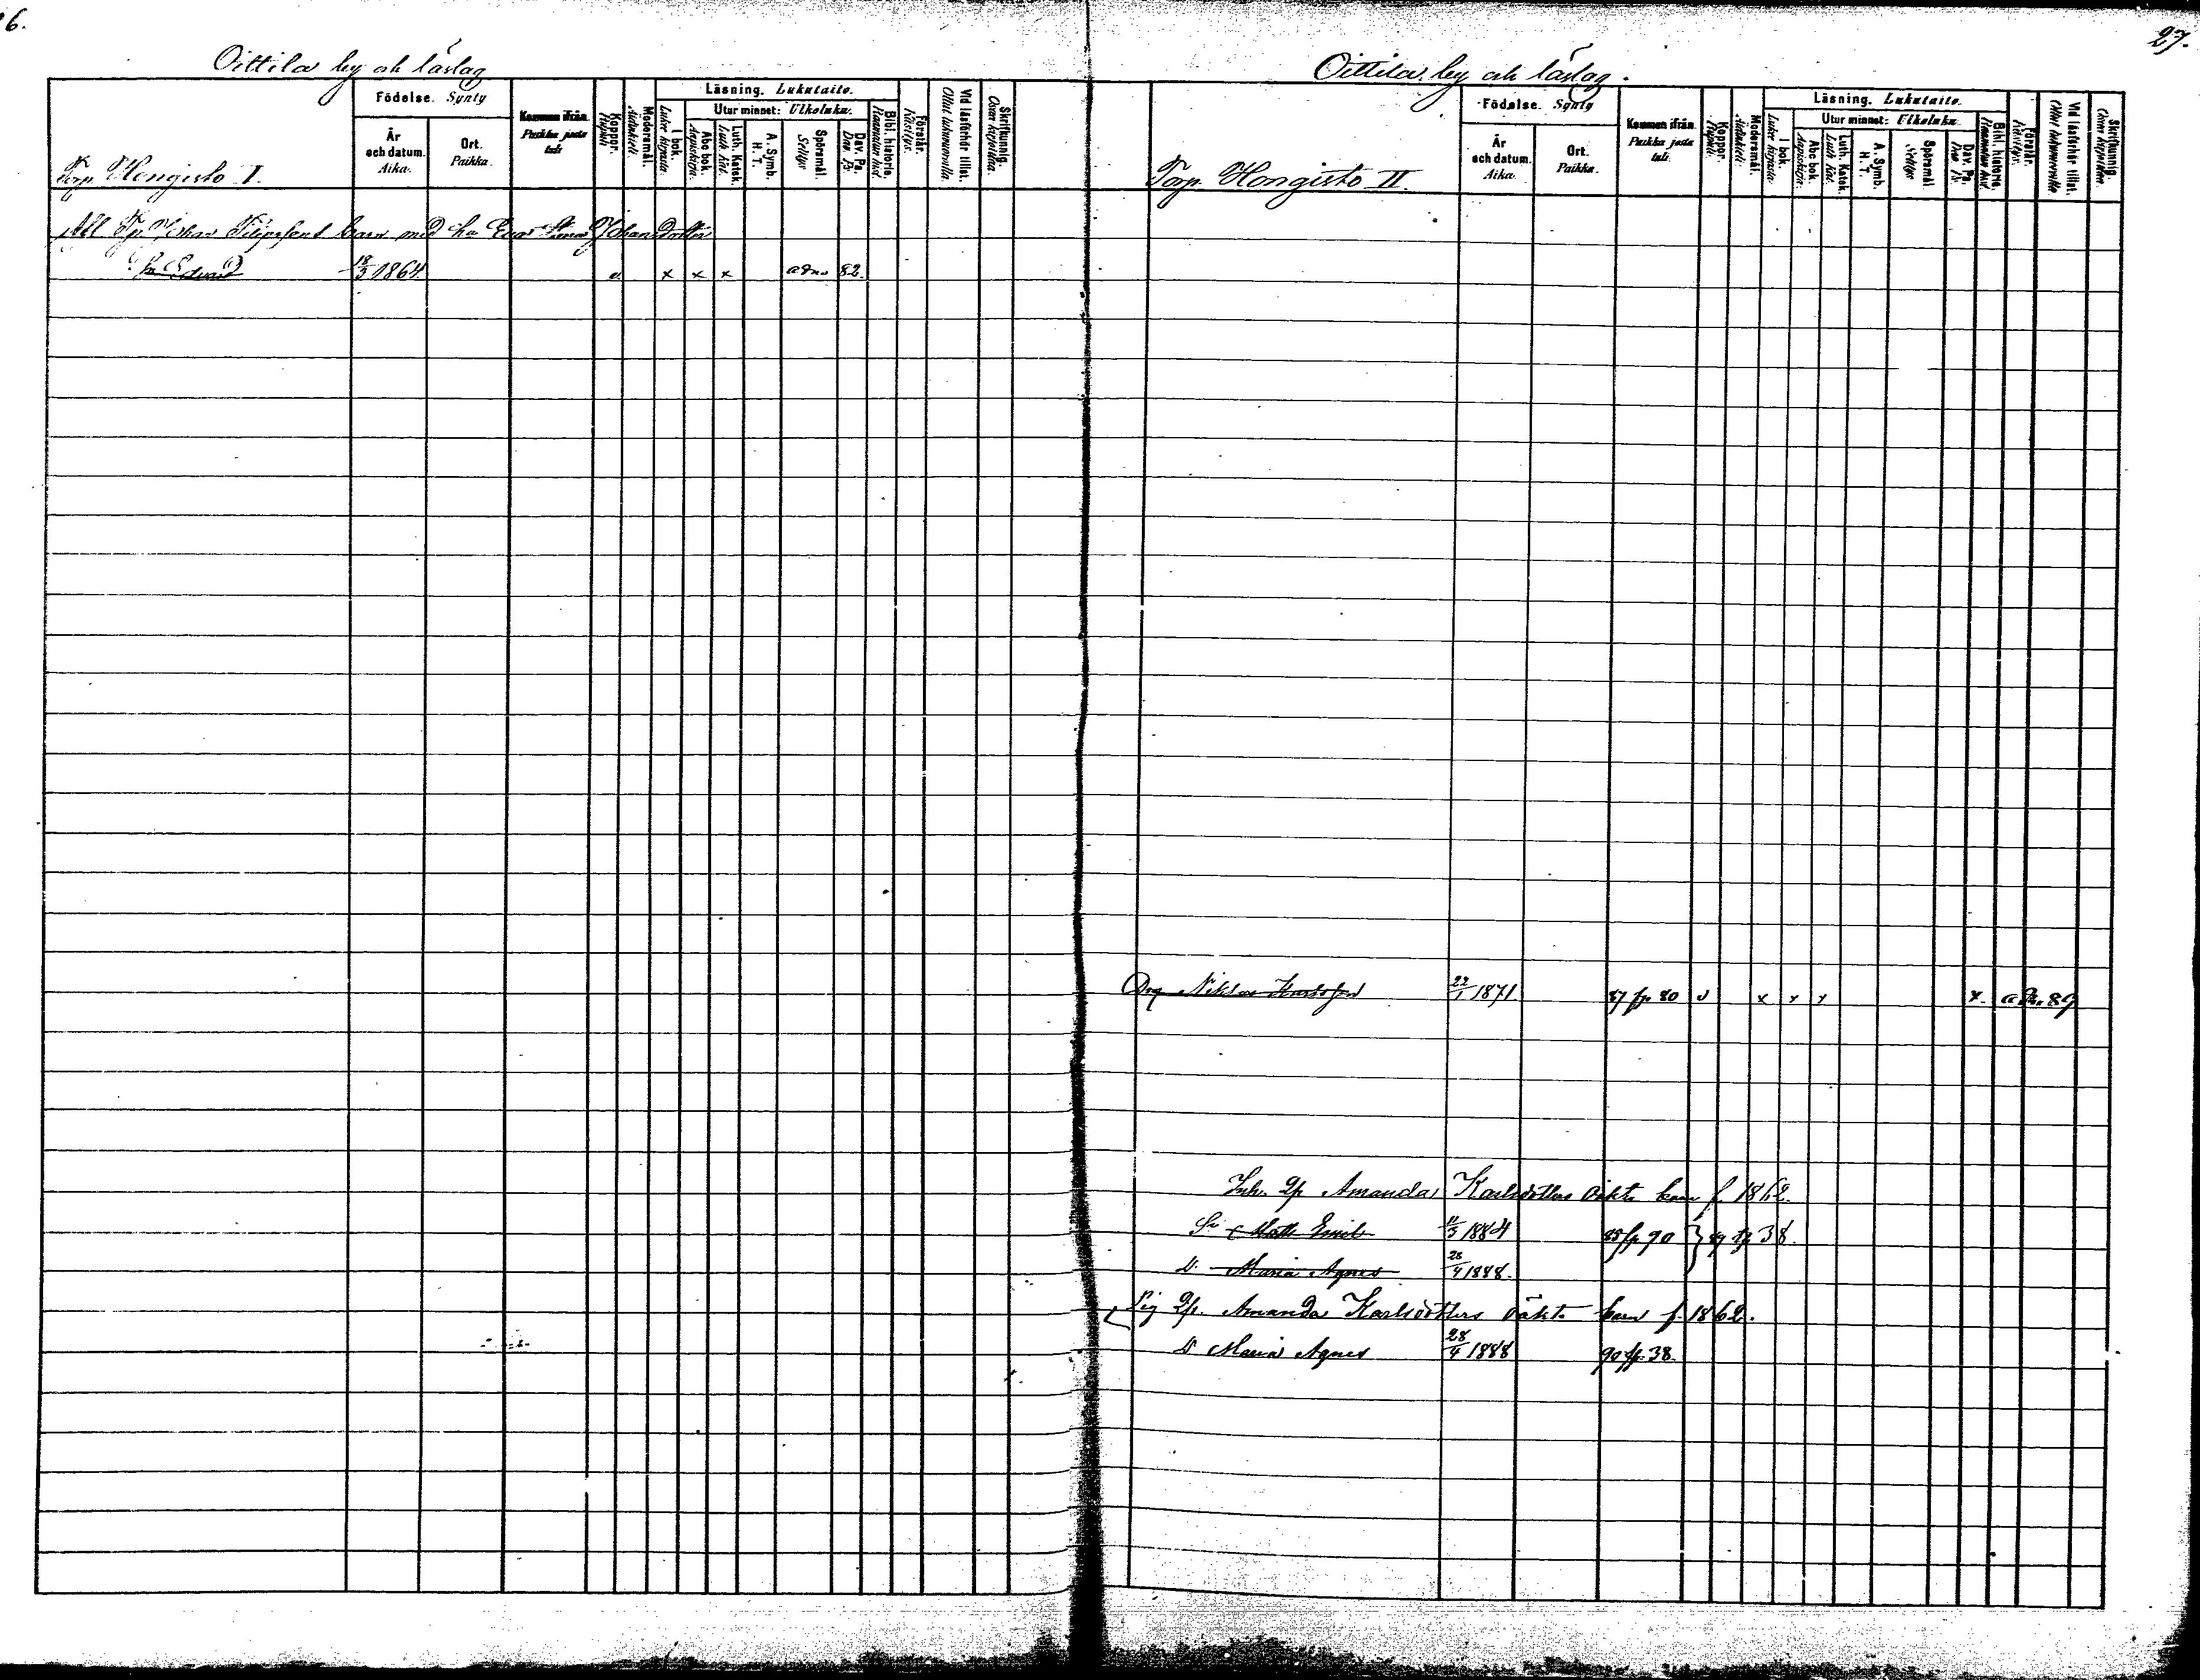 6.
Oittila by och läslag
Födelse. Synty
År och datum. Aika.
Ort. Paikka.
Kommen ifrån. Paikka josta tuli.
Koppor. Rupuli
Modersmål. Äidinkieli
Läsning. Lukutaito.
I bok. Luku kirjasta
Utur minnet: Ulkoluku.
Abc bok. Aapiskirja.
Luth. Katek. Luth. Kat.
A. Symb. H. T.
Spörsmål. Selitys
Dav. Ps. Dav. Ps.
Bibl. historie.
Förstår. Käsitys.
Vid läsförhör tillst. Ollut lukuvuorolla.
Skriftkunnig. Osaa kirjoittaa.
Torp. Hongisto I.
Afl. Tp. Johan barn med h:u Eva Stina Johansdotter
Sn Edvard 18/3 1864 v. x x x adm 82.
27.
Oittila by och läslag.
Födelse. Synty
År och datum. Aika.
Ort. Paikka.
Kommen ifrån. Paikka josta tuli.
Koppor. Rupuli
Modersmål. Äidinkieli
Läsning. Lukutaito.
I bok. Luku kirjasta
Utur minnet: Ulkoluku.
Abc bok. Aapiskirja.
Luth. Katek. Luth. Kat.
A. Symb. H. T.
Spörsmål. Selitys
Dav. Ps. Dav. Ps.
Bibl. historie.
Förstår. Käsitys.
Vid läsförhör tillst. Ollut lukuvuorolla
Skriftkunnig. Osaa kirjoittaa.
Torp. Hongisto II.
Drg Niklas Karlsson 23/1 1871 87 fr. 80 v x x x x. adm. 89
Inh. Qp Amanda Karlsdotters oäkta barn f 1862.
Sn Matts Emil 11/3 1884 88 fr 90 } 89 tp 38.
D. Maria Agnes 28/4 1888.
Lig Qp. Amanda Karlsdotters oäkta barn f. 1862.
D Maria Agnes 28/4 1888 90 fr. 38.